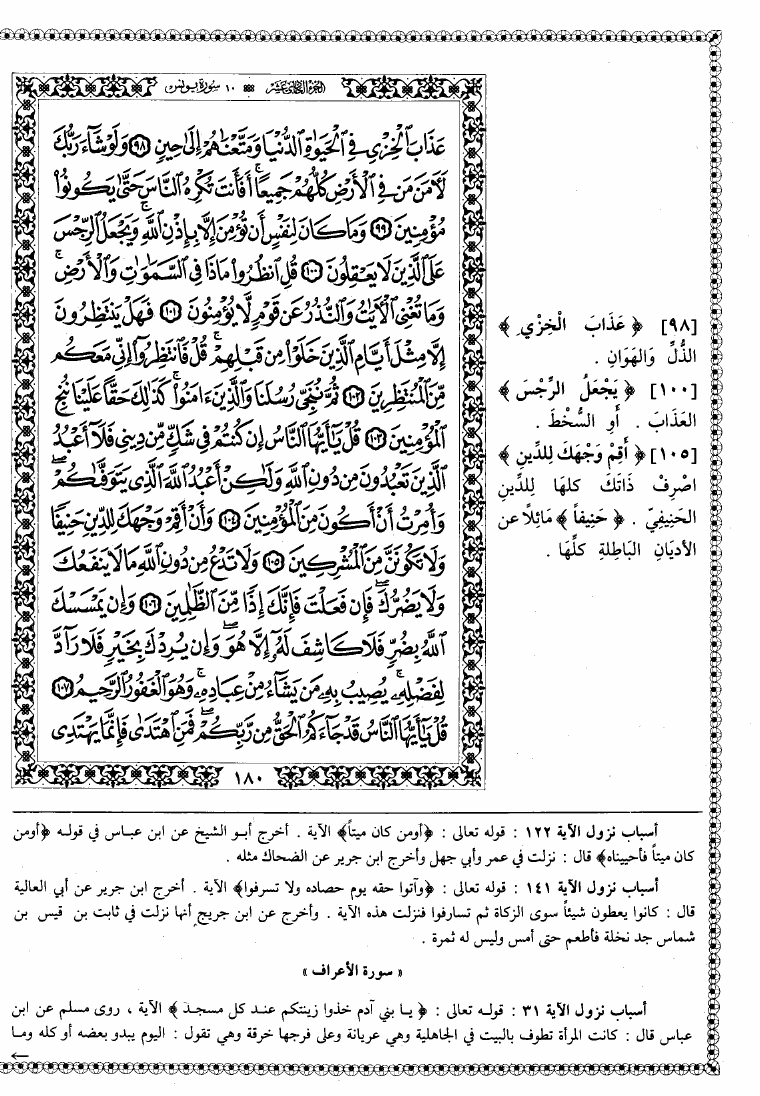 الجزء الحادي عشر ١٠ سورة يونس
عَذَابَ ٱلْخِزْيِ فِي ٱلْحَيَوٰةِ ٱلدُّنْيَا وَمَتَّعْنَٰهُمْ إِلَىٰ حِينٍ ﴿٩٨﴾ وَلَوْ شَآءَ رَبُّكَ
لَأٓمَنَ مَن فِي ٱلْأَرْضِ كُلُّهُمْ جَمِيعًا ۚ أَفَأَنتَ تُكْرِهُ ٱلنَّاسَ حَتَّىٰ يَكُونُوا۟
مُؤْمِنِينَ ﴿٩٩﴾ وَمَا كَانَ لِنَفْسٍ أَن تُؤْمِنَ إِلَّا بِإِذْنِ ٱللَّهِ ۚ وَيَجْعَلُ ٱلرِّجْسَ
عَلَى ٱلَّذِينَ لَا يَعْقِلُونَ ﴿١٠٠﴾ قُلِ ٱنظُرُوا۟ مَاذَا فِي ٱلسَّمَٰوَٰتِ وَٱلْأَرْضِ ۚ
وَمَا تُغْنِي ٱلْأٓيَٰتُ وَٱلنُّذُرُ عَن قَوْمٍ لَّا يُؤْمِنُونَ ﴿١٠١﴾ فَهَلْ يَنتَظِرُونَ
إِلَّا مِثْلَ أَيَّامِ ٱلَّذِينَ خَلَوْا۟ مِن قَبْلِهِمْ ۚ قُلْ فَٱنتَظِرُوٓا۟ إِنِّي مَعَكُم
مِّنَ ٱلْمُنتَظِرِينَ ﴿١٠٢﴾ ثُمَّ نُنَجِّي رُسُلَنَا وَٱلَّذِينَ ءَامَنُوا۟ ۚ كَذَٰلِكَ حَقًّا عَلَيْنَا نُنجِ
ٱلْمُؤْمِنِينَ ﴿١٠٣﴾ قُلْ يَٰٓأَيُّهَا ٱلنَّاسُ إِن كُنتُمْ فِي شَكٍّ مِّن دِينِي فَلَآ أَعْبُدُ
ٱلَّذِينَ تَعْبُدُونَ مِن دُونِ ٱللَّهِ وَلَٰكِنْ أَعْبُدُ ٱللَّهَ ٱلَّذِي يَتَوَفَّىٰكُمْ ۖ
وَأُمِرْتُ أَنْ أَكُونَ مِنَ ٱلْمُؤْمِنِينَ ﴿١٠٤﴾ وَأَنْ أَقِمْ وَجْهَكَ لِلدِّينِ حَنِيفًا
وَلَا تَكُونَنَّ مِنَ ٱلْمُشْرِكِينَ ﴿١٠٥﴾ وَلَا تَدْعُ مِن دُونِ ٱللَّهِ مَا لَا يَنفَعُكَ
وَلَا يَضُرُّكَ ۖ فَإِن فَعَلْتَ فَإِنَّكَ إِذًا مِّنَ ٱلظَّٰلِمِينَ ﴿١٠٦﴾ وَإِن يَمْسَسْكَ
ٱللَّهُ بِضُرٍّ فَلَا كَاشِفَ لَهُۥٓ إِلَّا هُوَ ۖ وَإِن يُرِدْكَ بِخَيْرٍ فَلَا رَآدَّ
لِفَضْلِهِۦ ۚ يُصِيبُ بِهِۦ مَن يَشَآءُ مِنْ عِبَادِهِۦ ۚ وَهُوَ ٱلْغَفُورُ ٱلرَّحِيمُ ﴿١٠٧﴾
قُلْ يَٰٓأَيُّهَا ٱلنَّاسُ قَدْ جَآءَكُمُ ٱلْحَقُّ مِن رَّبِّكُمْ ۖ فَمَنِ ٱهْتَدَىٰ فَإِنَّمَا يَهْتَدِي
١٨٠
[٩٨] ﴿ عَذَابَ الْخِزْيِ ﴾
الذُّلّ وَالهَوَانِ .
[١٠٠] ﴿ يَجْعَلُ الرِّجْسَ ﴾
العَذَابَ . أَوِ السُّخْطَ .
[١٠٥] ﴿ أَقِمْ وَجْهَكَ لِلدِّينِ ﴾
اصْرِفْ ذَاتَكَ كلهَا لِلدِّينِ
الحَنِيفِيّ . ﴿ حَنِيفاً ﴾ مَائِلًا عن
الأديَانِ البَاطِلةِ كلِّهَا .
أسباب نزول الآية ١٢٢ : قوله تعالى : ﴿أومن كان ميتاً﴾ الآية . أخرج أبو الشيخ عن ابن عباس في قوله ﴿أومن
كان ميتاً فأحييناه﴾ قال : نزلت في عمر وأبي جهل وأخرج ابن جرير عن الضحاك مثله .
أسباب نزول الآية ١٤١ : قوله تعالى : ﴿وآتوا حقه يوم حصاده ولا تسرفوا﴾ الآية . أخرج ابن جرير عن أبي العالية
قال : كانوا يعطون شيئاً سوى الزكاة ثم تسارفوا فنزلت هذه الآية . وأخرج عن ابن جريج أنها نزلت في ثابت بن قيس بن
شماس جد نخلة فأطعم حتى أمس وليس له ثمرة .
« سورة الأعراف »
أسباب نزول الآية ٣١ : قوله تعالى : ﴿ يا بني آدم خذوا زينتكم عند كل مسجد ﴾ الآية ، روى مسلم عن ابن
عباس قال : كانت المرأة تطوف بالبيت في الجاهلية وهي عريانة وعلى فرجها خرقة وهي تقول : اليوم يبدو بعضه أو كله وما
←